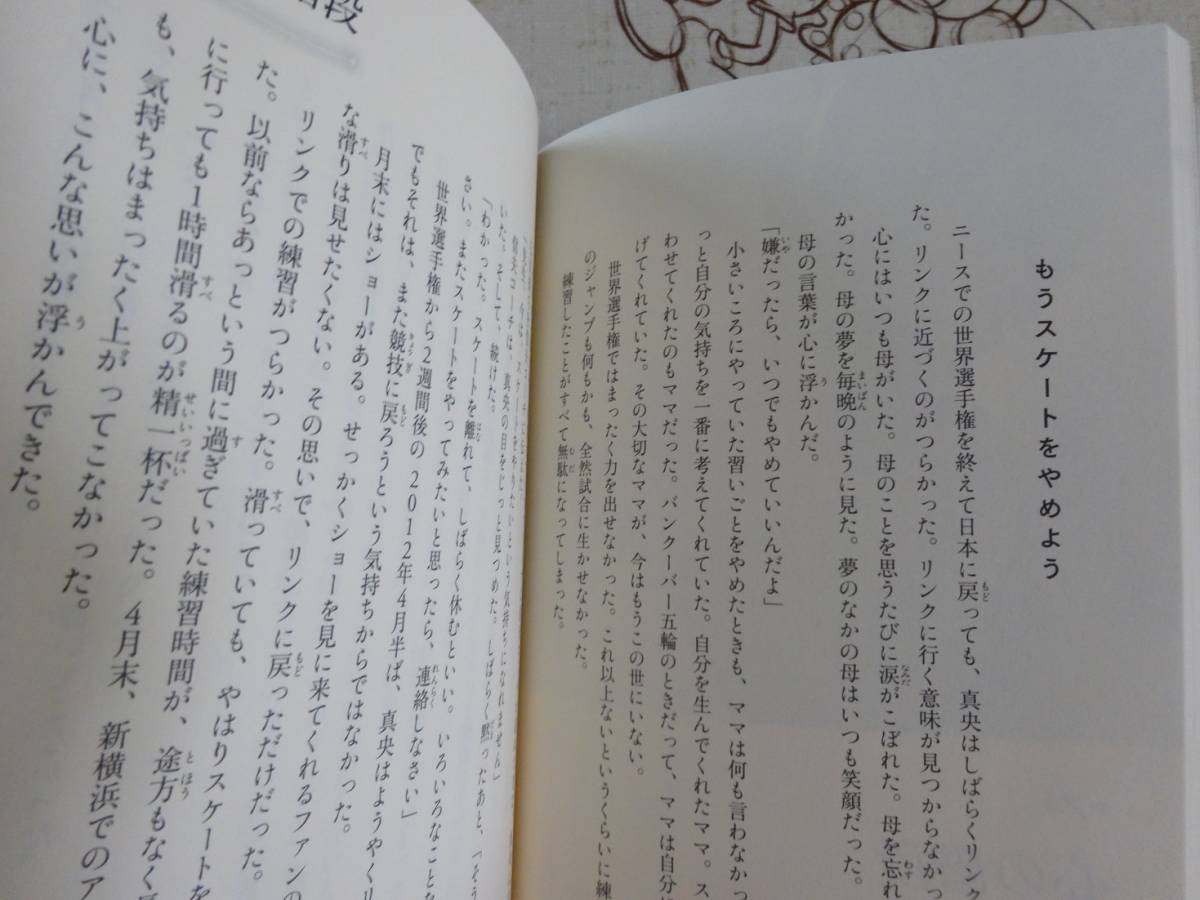 もうスケートをやめよう
ニースでの世界選手権を終えて日本に戻っても、真央はしばらくリンク
た。リンクに近づくのがつらかった。リンクに行く意味が見つからなかっ
心にはいつも母がいた。母のことを思うたびに涙がこぼれた。母を忘れ
かった。母の夢を毎晩のように見た。夢のなかの母はいつも笑顔だった。
母の言葉が心に浮かんだ。
「嫌だったら、いつでもやめていいんだよ」
小さいころにやっていた習いごとをやめたときも、ママは何も言わなかっ
っと自分の気持ちを一番に考えてくれていた。自分を生んでくれたママ。ス
わせてくれたのもママだった。バンクーバー五輪のときだって、ママは自分に
げてくれていた。その大切なママが、今はもうこの世にいない。
世界選手権ではまったく力を出せなかった。これ以上ないというくらいに練
のジャンプも何もかも、全然試合に生かせなかった。
練習したことがすべて無駄になってしまった。
スケートをやりたいという気持ちになれません」
いた。そして、続けた。
コーチは、真央の目をじっと見つめた。しばらく黙ったあと、「そう
「わかった。スケートを離れて、しばらく休むといい。いろいろなことを
さい。またスケートをやってみたいと思ったら、連絡しなさい」
世界選手権から2週間後の2012年4月半ば、真央はようやくリ
でもそれは、また競技に戻ろうという気持ちからではなかった。
月末にはショーがある。せっかくショーを見に来てくれるファンの
な滑りは見せたくない。その思いで、リンクに戻っただけだった。
リンクでの練習がつらかった。滑っていても、やはりスケートを
た。以前ならあっという間に過ぎていた練習時間が、途方もなく
に行っても1時間滑るのが精一杯だった。4月末、新横浜でのア
も、気持ちはまったく上がってこなかった。
心に、こんな思いが浮かんできた。
段